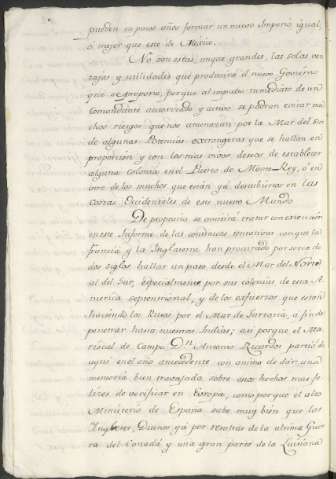 pueden en pocos años formar un nuevo Imperio igual,
ó mejor que este de Mexico.
No son estas, aunque grandes, las solas ven
tajas y utilidades que producirá el nuevo Govierno
que se propone, porque al impulso inmediato de un
Comandante autorizado y activo se podran evitar mu
chos riesgos que nos amenazan por la Mar del Sur
de algunas Potencias extrangeras que se hallan en
proporcion y con las mas vivas deseos de establecer
alguna colonia en el Puerto de Monte-Rey, ó en
otro de los muchos que están ya descubiertos en las
costas Occidentales de este nuevo Mundo.
De proposito se omitirá tratar con extension
en este Informe de las continuas tentativas con que la
Francia y la Inglaterra han procurado por cerca de
dos siglos hallar un paso desde el Mar del Norte
al del Sur, especialmente por sus colonias de esta A
merica septentrional, y de los esfuerzos que están
haciendo los Rusos por el Mar de Tartaria, a fin de
penetrar hasta nuestras Indias; asi porque el Ma
riscal de Campo Dn. Antonio Ricardos partió de
aqui en el año antecedente con animo de dar una
memoria bien trabajada sobre estos hechos mas fa
ciles de verificar en Europa, como porque el alto
Ministerio de España sabe muy bien que los
Ingleses, Dueños ya por resultas de la ultima Guer
ra del Canadá y una gran parte de la Luisiana